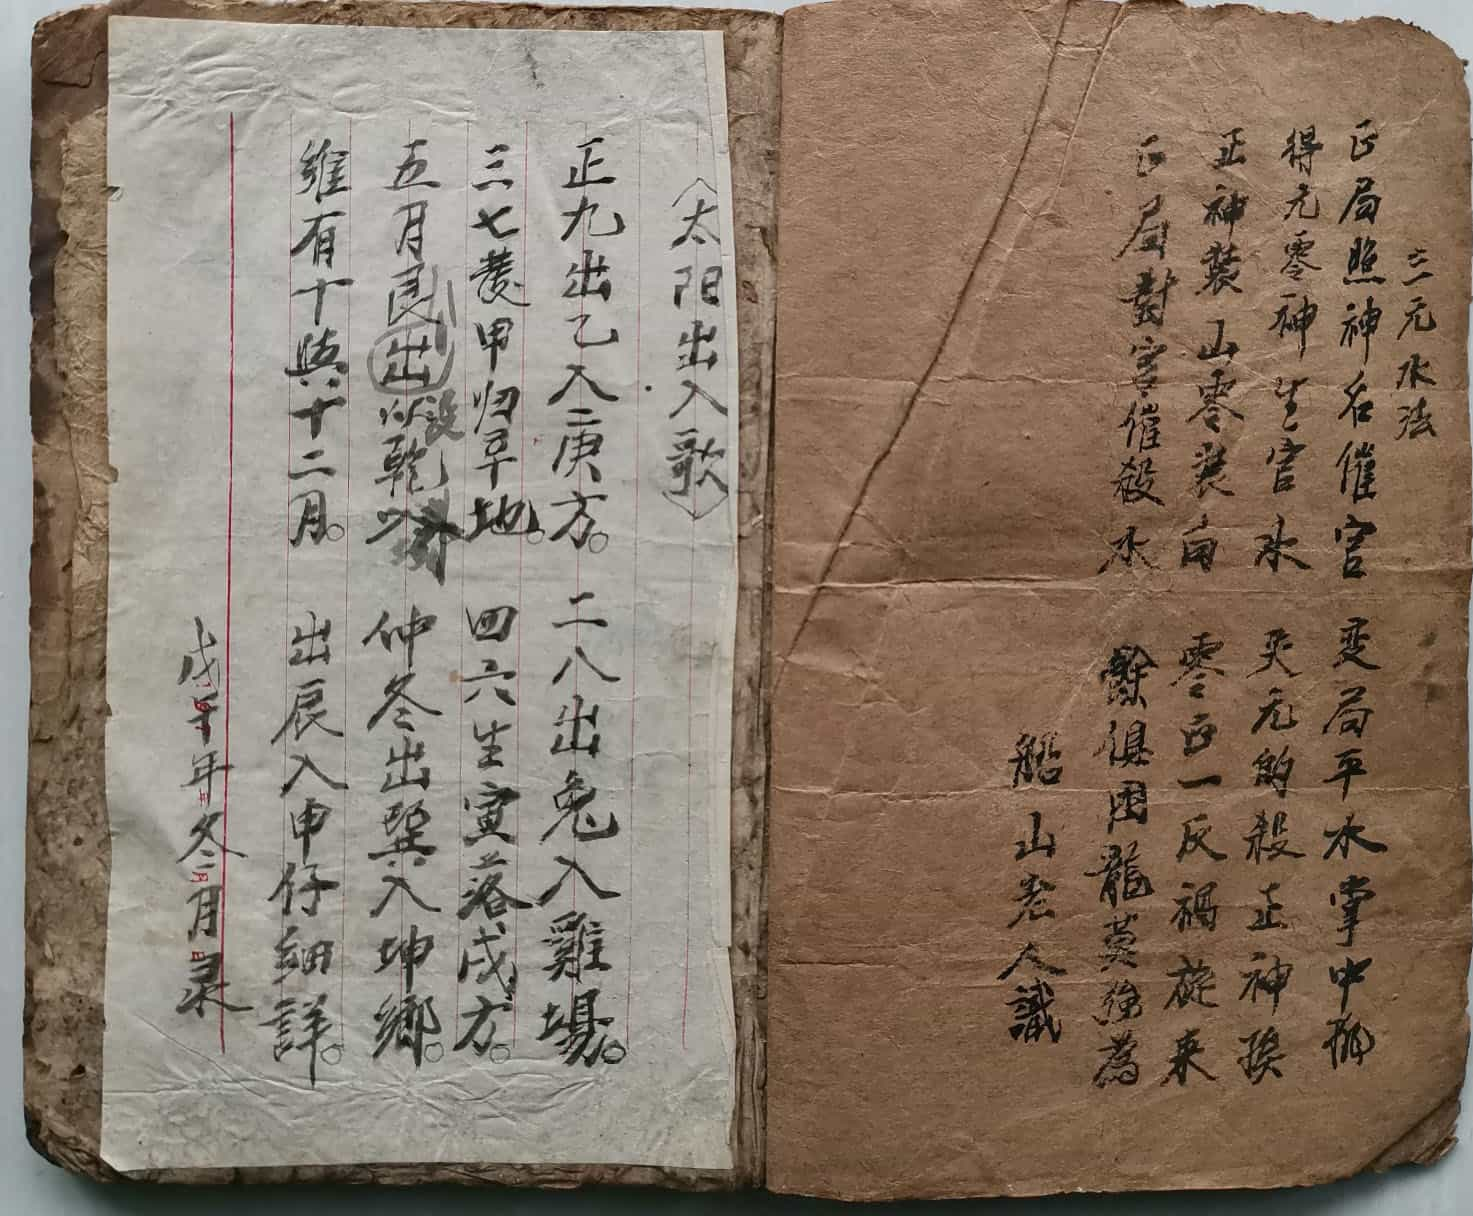 三元水法
正局照神名催官　变局平水掌中挑
得元零神生官水　失元的殺正神挨
正神裝山零裝向　零正一反禍旋来
正局對宮催殺水　餘俱困龍莫強為
船山老人識
（太阳出入歌）
正九出乙入庚方。二八出兔入雞場。
三七發甲归辛地。四六生寅落戌方。
五月艮出以沒乾　仲冬出巽入坤鄉。
維有十與十二月。出辰入申仔細詳。
戊午年冬月录